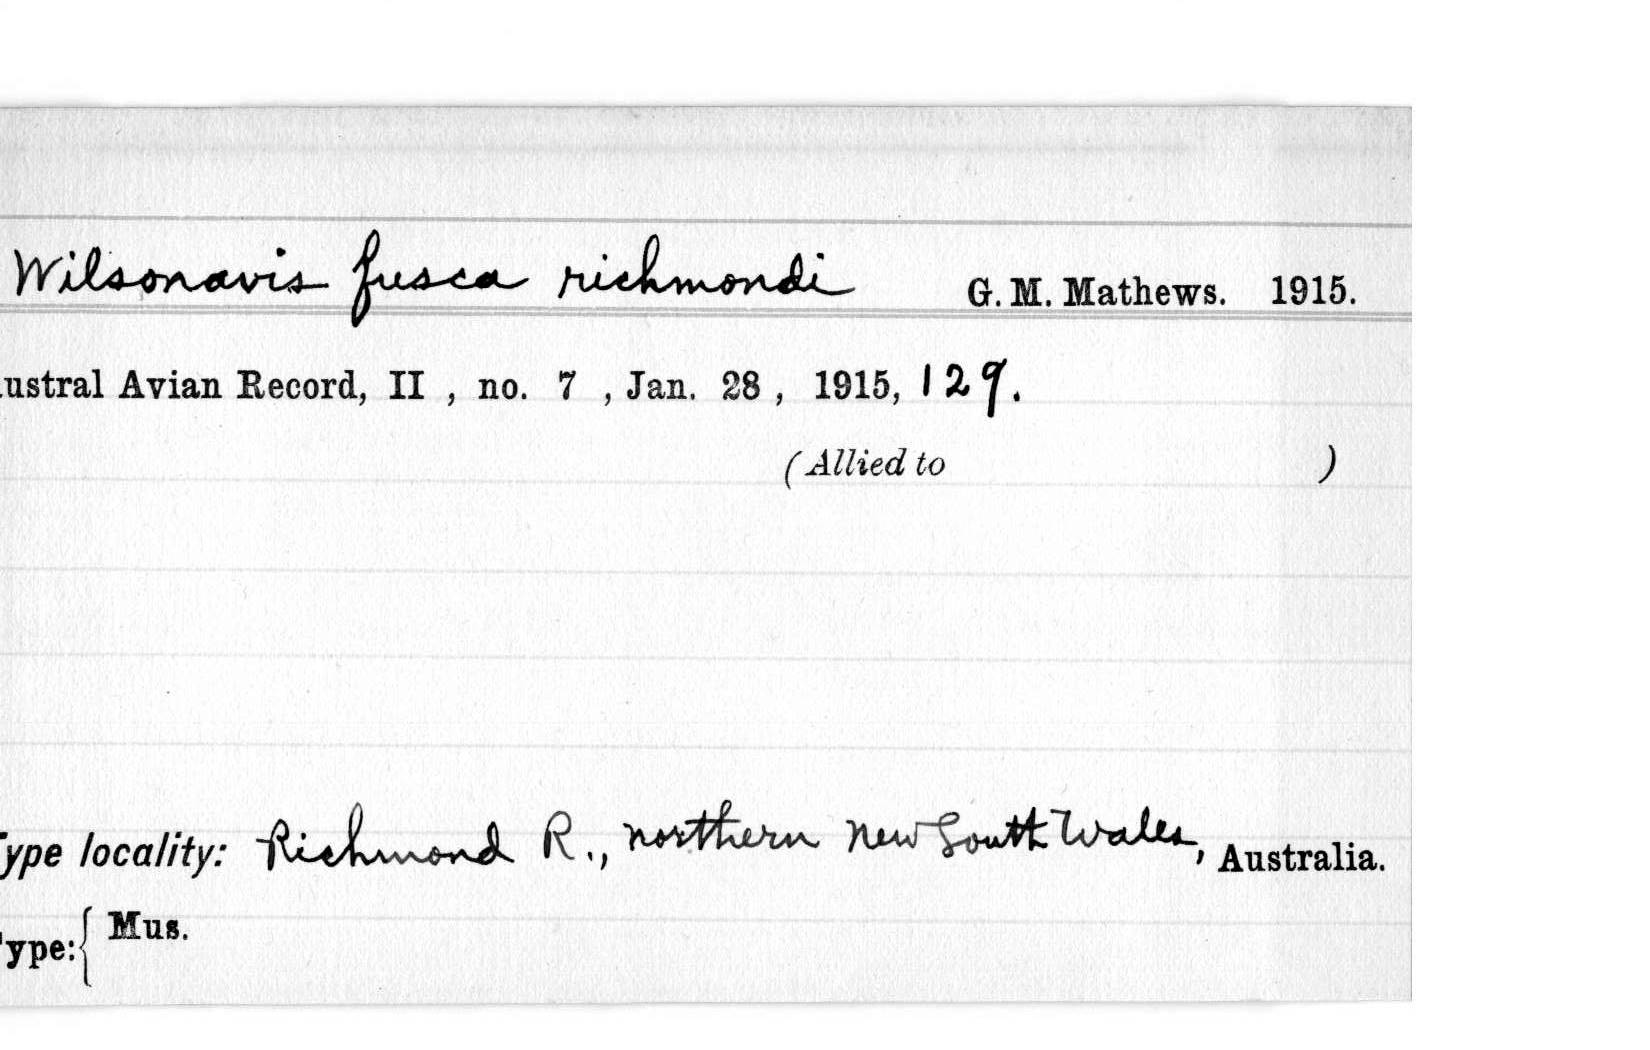 Wilsonavis fusca richmondi G. M. Mathews. 1915.
ustral Avian Record, II , no. 7 , Jan. 28 , 1915, 129.
(Allied to )
Type locality: Richmond R., northern New South Wales, Australia.
Type: { Mus.